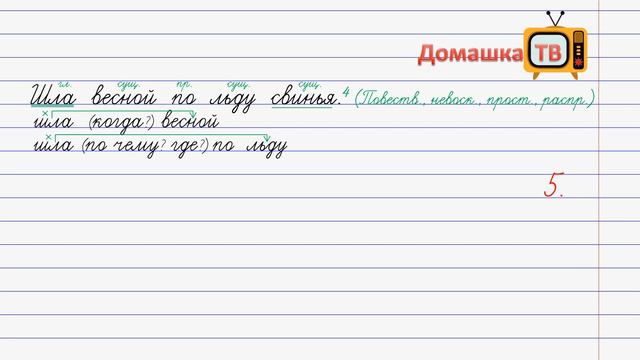 Домашка ТВ
гл. сущ. пр. сущ. сущ.
Шла весной по льду свинья.⁴ (Повеств., невоск., прост., распр.)
шла (когда?) весной
шла (по чему? где?) по льду
5.